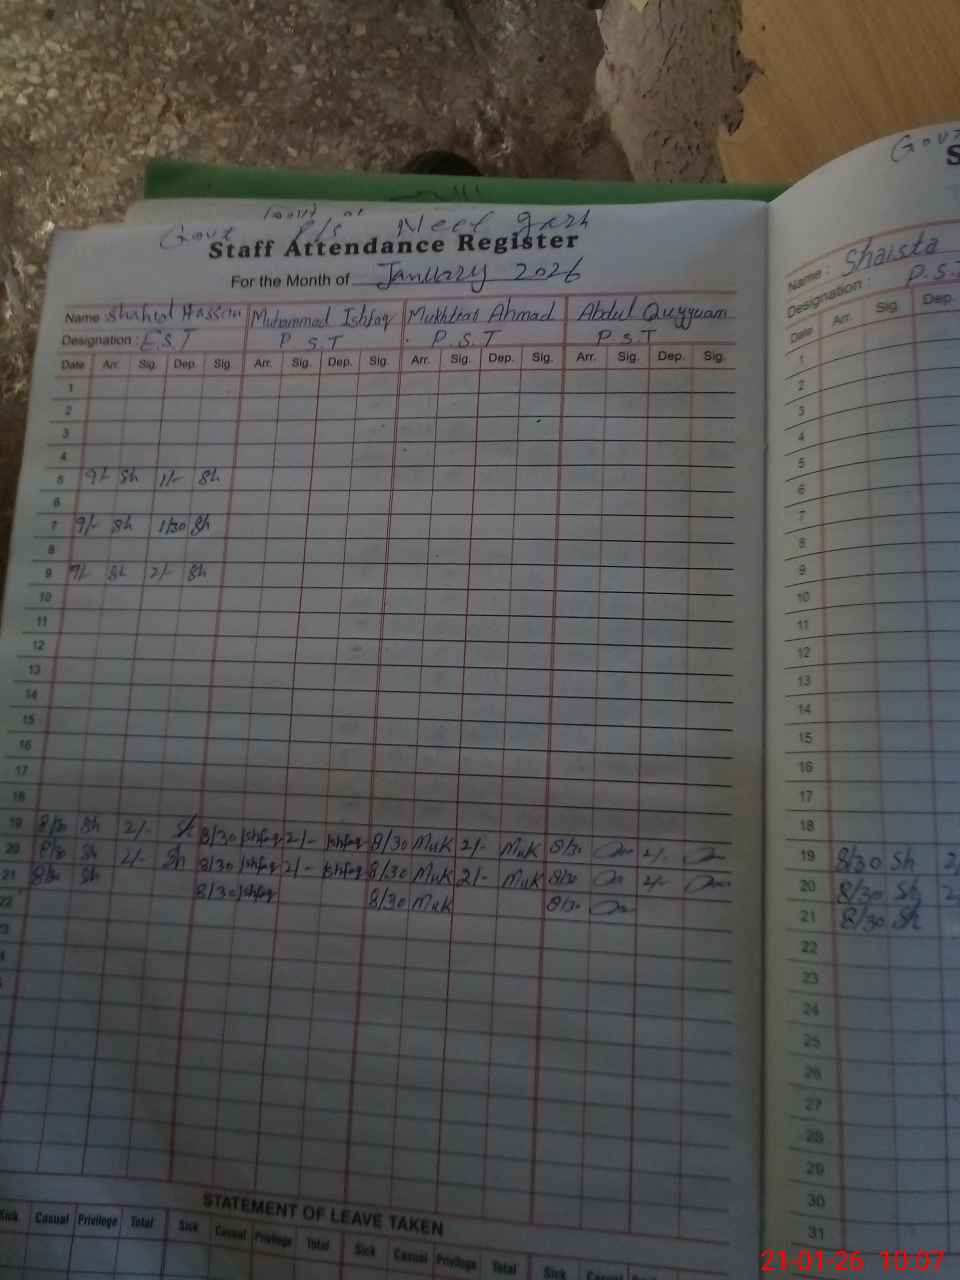 Govt P/S Neel garh
Staff Attendance Register
For the Month of January 2026
Name Shahid Hassan Muhammad Ishfaq Mukhtiar Ahmad Abdul Quyyuam
Designation : E.S.T P.S.T P.S.T P.S.T
Date Arr. Sig. Dep. Sig. Arr. Sig. Dep. Sig. Arr. Sig. Dep. Sig. Arr. Sig. Dep. Sig.
1
2
3
4
5 9/- Sh 1/- Sh
6
7 9/- Sh 1/30 Sh
8
9 9/- Sh 2/- Sh
10
11
12
13
14
15
16
17
18
19 8/30 Sh 2/- Sh 8/30 Ishfaq 2/- Ishfaq 8/30 Muk 2/- Muk 8/30 2/-
20 8/30 Sh 2/- Sh 8/30 Ishfaq 2/- Ishfaq 8/30 Muk 2/- Muk 8/30 2/-
21 8/30 Sh 8/30 Ishfaq 8/30 Muk 8/30
22
23
STATEMENT OF LEAVE TAKEN
Sick Casual Privilege Total Sick Casual Privilege Total Sick Casual Privilege Total Sick Casual
Govt
S
Name : Shaista
Designation : P.S.T
Date Arr. Sig. Dep.
1
2
3
4
5
6
7
8
9
10
11
12
13
14
15
16
17
18
19 8/30 Sh 2/
20 8/30 Sh 2
21 8/30 Sh
22
23
24
25
26
27
28
29
30
31
21-01-26 10:07